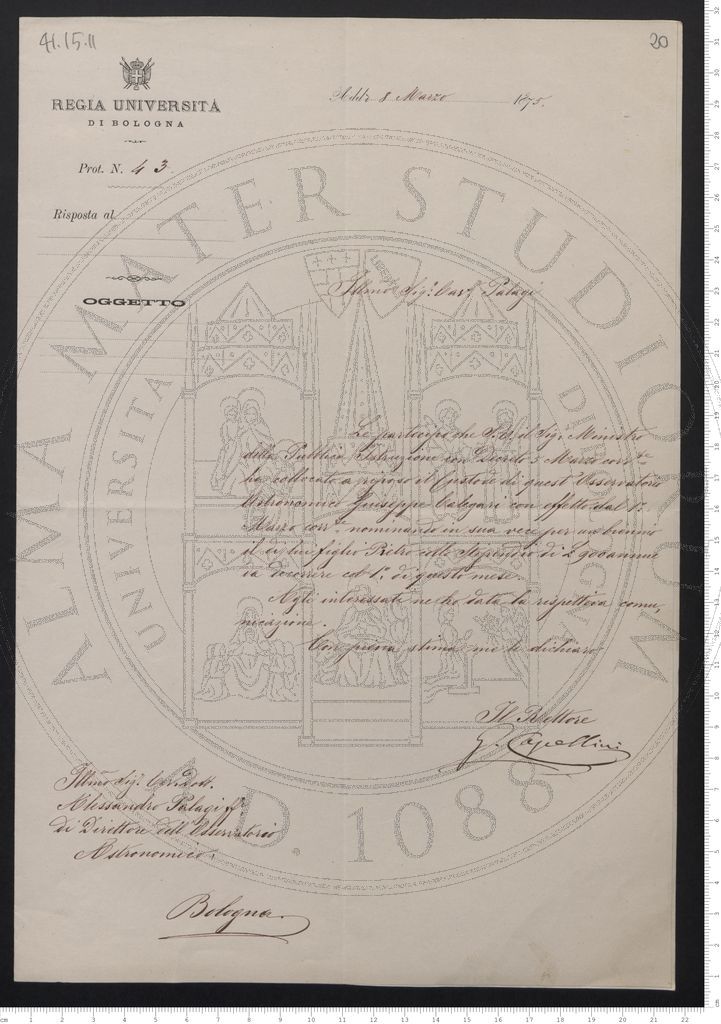 41.15.11
20
REGIA UNIVERSITÀ
DI BOLOGNA
Addì 8 Marzo 1875.
Prot. N. 43.
Risposta al
OGGETTO
Illmo Sigr. Cavr. Palagi
Le partecipo che S. E. il Sigr. Ministro
della Pubblica Istruzione con Decreto 5 Marzo corrte
ha collocato a riposo il Custode di quest'Osservatorio
Astronomico Giuseppe Calegari con effetto dal 1º.
Marzo corre. nominando in sua vece per un biennio
il di lui figlio Pietro collo Stipendio di £ 900 annue
da decorrere col 1º. di questo mese.
Agli interessati ne ho data la rispettiva comu,
nicazione.
Con piena stima me le dichiaro
Il Rettore
G. Capellini
Illmo Sigr. Cav. Dott.
Alessandro Palagi ff.
di Direttore dell'Osservatorio
Astronomico.
Bologna
ALMA MATER STUDIORUM
UNIVERSITA DI BOLOGNA
A.D. 1088